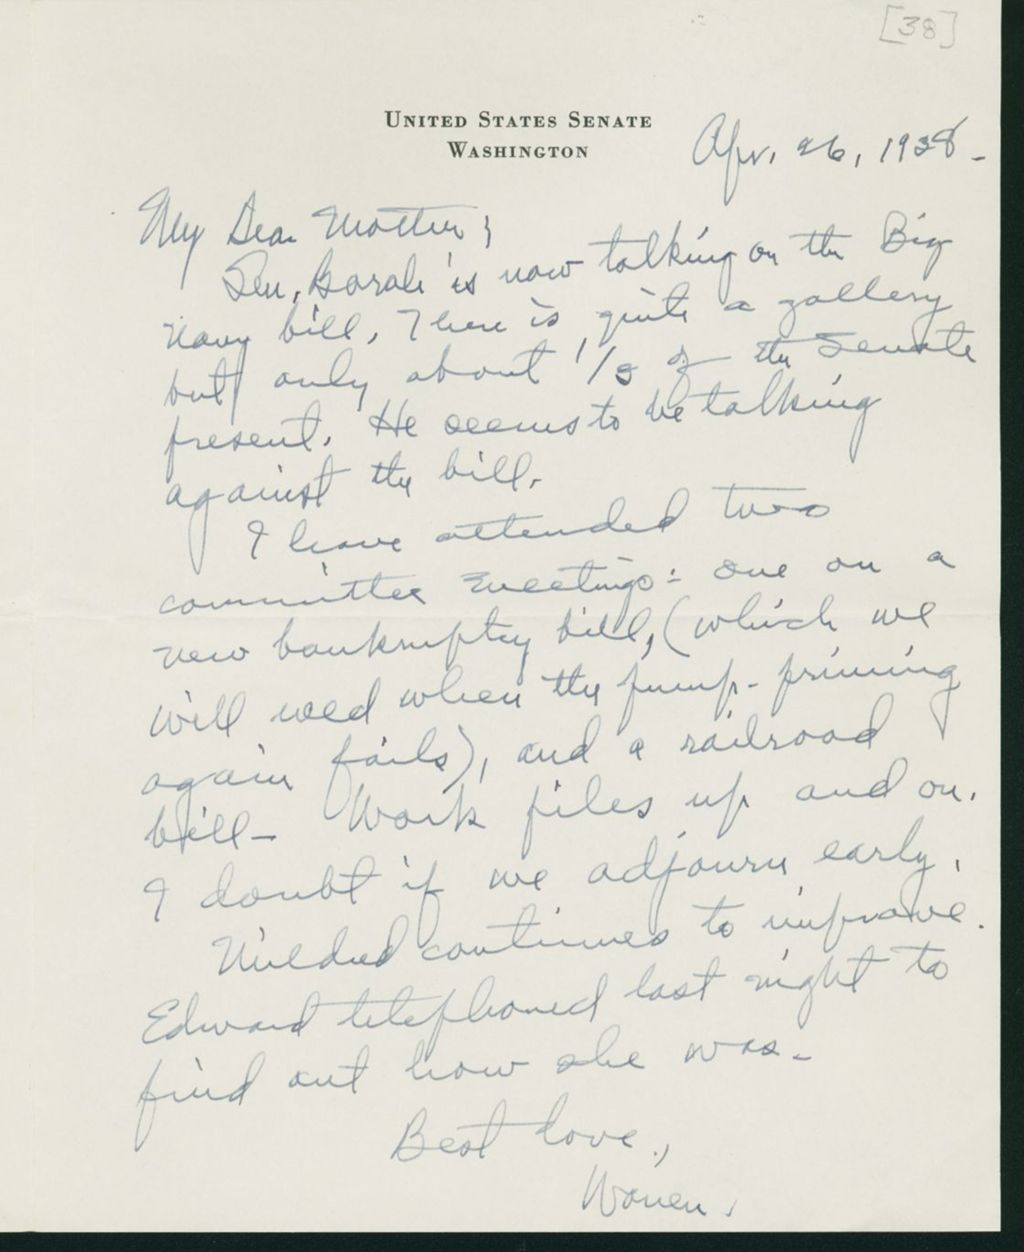 [38]
UNITED STATES SENATE
WASHINGTON
Apr. 26, 1938-
My Dear Mother;
Sen. Borah is now talking on the Big
Navy bill. There is quite a gallery
but only about 1/3 of the Senate
present. He seems to be talking
against the bill.
I have attended two
committee meetings: one on a
new bankruptcy bill, (which we
will need when the pump-priming
again fails), and a railroad
bill- Work piles up and on.
I doubt if we adjourn early.
Mildred continues to improve.
Edward telephoned last night to
find out how she was-
Best love,
Warren.